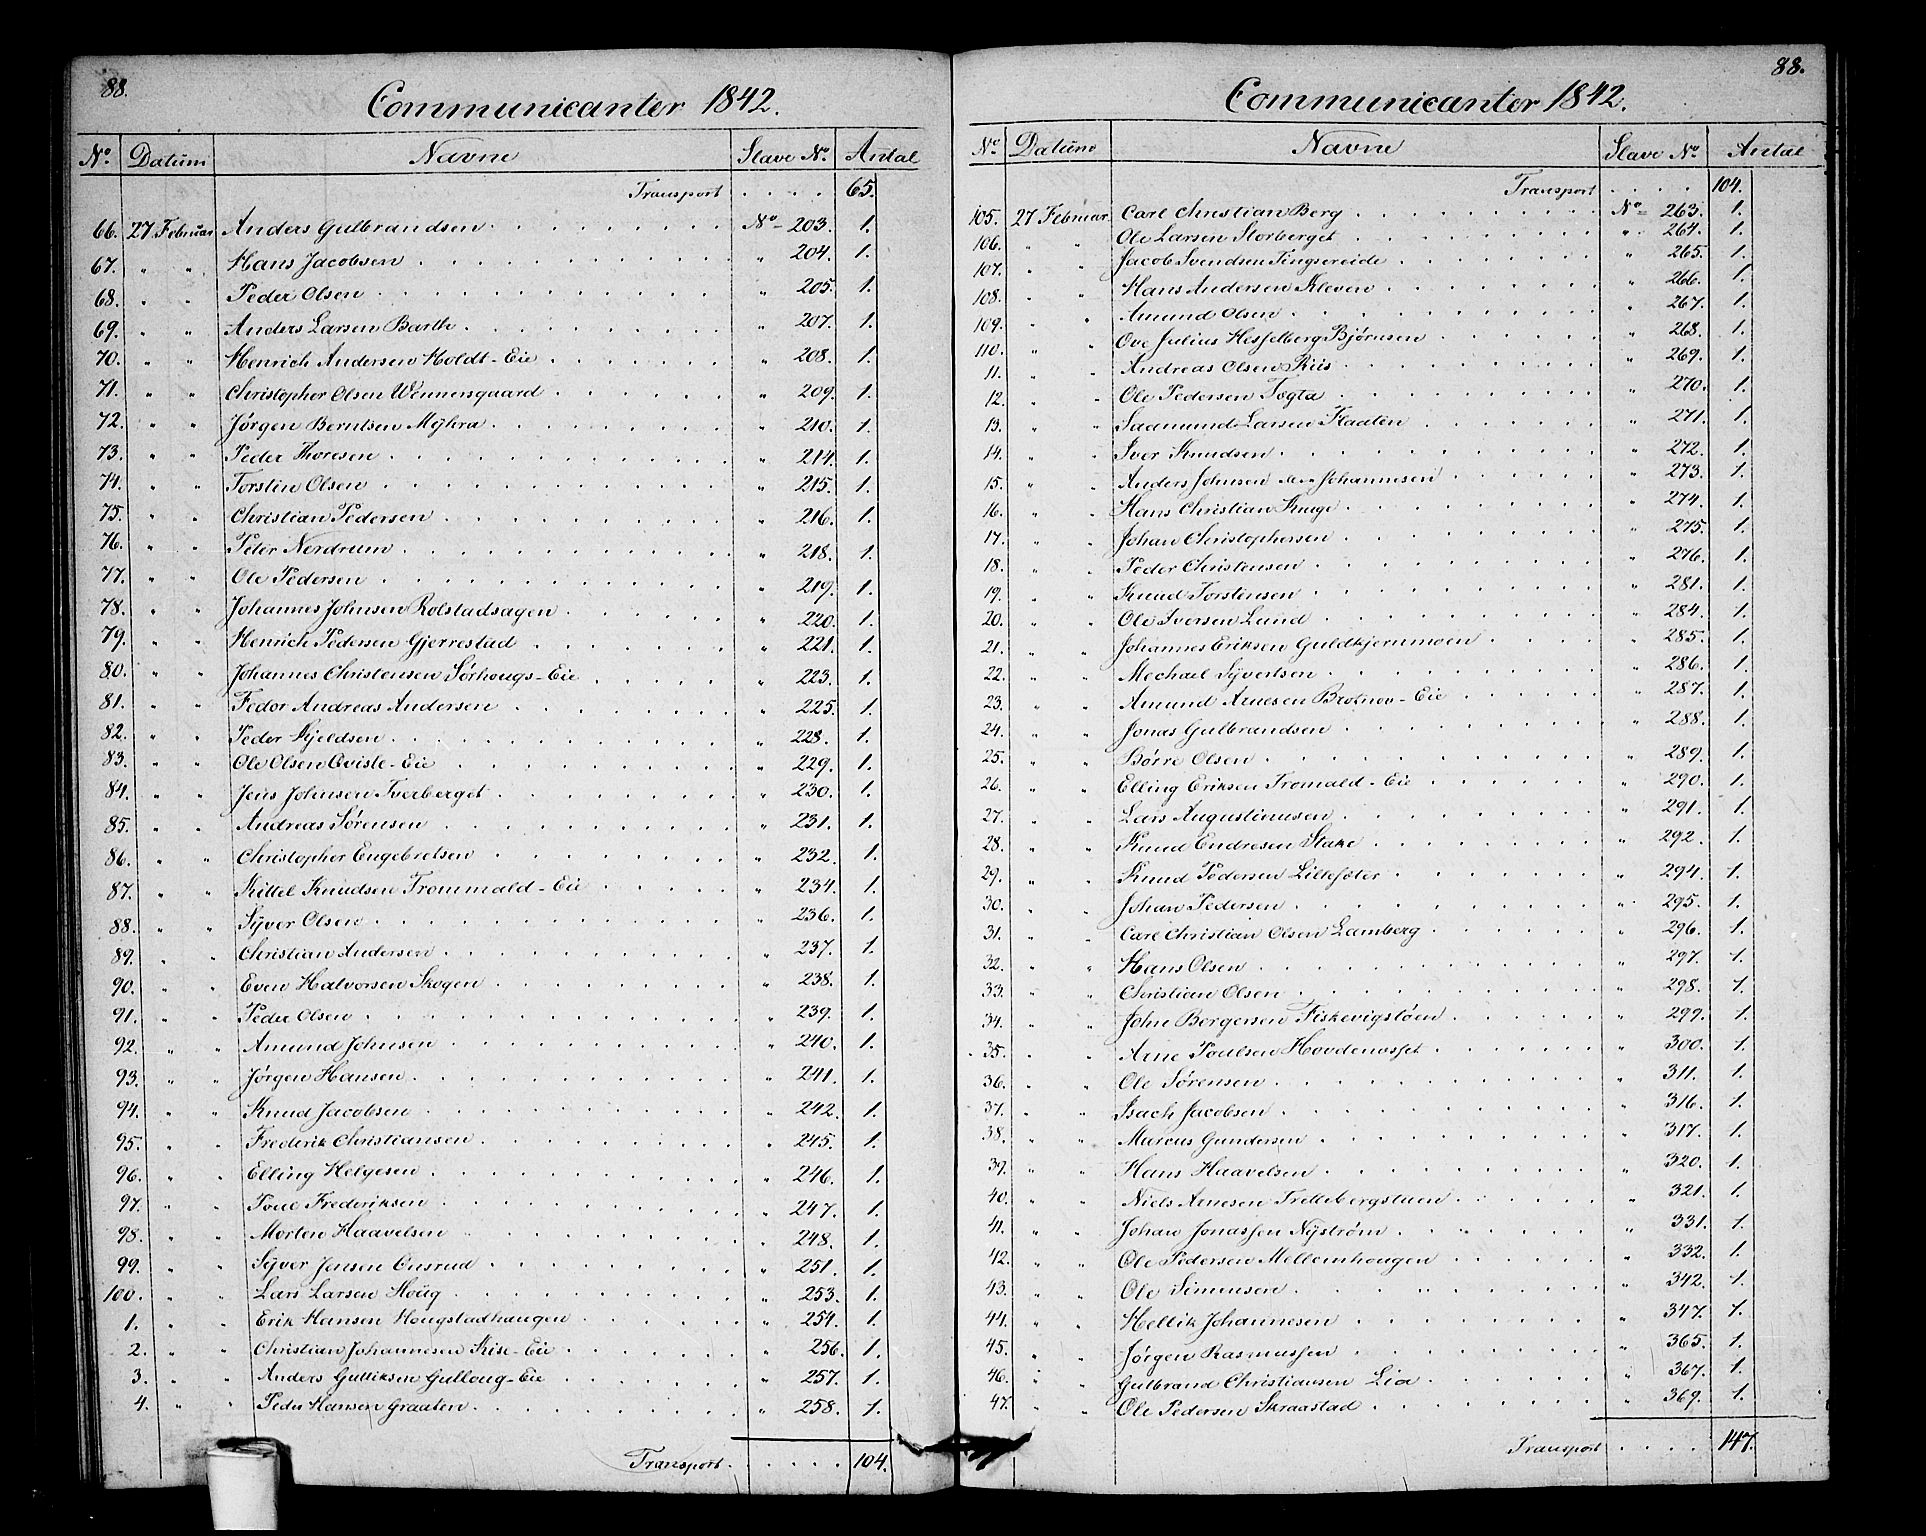 88.
Communicanter 1842.
No. Datum Navne Slave No. Antal
Transport . . . . 65.
66. 27 Februar Anders Gulbrandsen No. 203. 1.
67. " " Hans Jacobsen " 204. 1.
68. " " Peder Olsen " 205. 1.
69. " " Anders Larsen Barth " 207. 1.
70. " " Henrich Andersen Holdt-Eie " 208. 1.
71. " " Christopher Olsen Wennersgaard " 209. 1.
72. " " Jørgen Berntsen Myhra " 210. 1.
73. " " Peder Thoresen " 214. 1.
74. " " Torsten Olsen " 215. 1.
75. " " Christian Pedersen " 216. 1.
76. " " Peter Nordrum " 218. 1.
77. " " Ole Pedersen " 219. 1.
78. " " Johannes Johnsen Rolstadsagen " 220. 1.
79. " " Henrich Pedersen Gjerrestad " 221. 1.
80. " " Johannes Christensen Sørhougs-Eie " 223. 1.
81. " " Fedor Andreas Andersen " 225. 1.
82. " " Peder Kjeldsen " 228. 1.
83. " " Ole Olsen Qviste-Eie " 229. 1.
84. " " Jens Johnsen Tverberget " 230. 1.
85. " " Andreas Sørensen " 231. 1.
86. " " Christopher Engebretsen " 232. 1.
87. " " Kittel Knudsen Trommald-Eie " 234. 1.
88. " " Syver Olsen " 236. 1.
89. " " Christian Andersen " 237. 1.
90. " " Even Halvorsen Skogen " 238. 1.
91. " " Peder Olsen " 239. 1.
92. " " Amund Johnsen " 240. 1.
93. " " Jørgen Hansen " 241. 1.
94. " " Knud Jacobsen " 242. 1.
95. " " Frederik Christiansen " 245. 1.
96. " " Elling Helgesen " 246. 1.
97. " " Povel Frederiksen " 247. 1.
98. " " Morten Haavelsen " 248. 1.
99. " " Syver Jensen Onsrud " 251. 1.
100. " " Lars Larsen Houg " 253. 1.
1. " " Erik Hansen Hougstadhaugen " 254. 1.
2. " " Christian Johannesen Kise-Eie " 256. 1.
3. " " Anders Gulliksen Gulloug-Eie " 257. 1.
4. " " Peder Hansen Graaten " 258. 1.
Transport . . . . . 104.
88.
Communicanter 1842.
No. Datum Navne Slave No. Antal
Transport . . . . 104.
105. 27 Februar Carl Christian Berg No. 263. 1.
106. " " Ole Larsen Storberget " 264. 1.
107. " " Jacob Svendsen Tingsereide " 265. 1.
108. " " Hans Andersen Kleven " 266. 1.
109. " " Amund Olsen " 267. 1.
110. " " Ove Julius Hesselberg Bjørnsen " 268. 1.
11. " " Andreas Olsen Riis " 269. 1.
12. " " Ole Pedersen Togta " 270. 1.
13. " " Saamund Larsen Flaaten " 271. 1.
14. " " Iver Knudsen " 272. 1.
15. " " Anders Johnsen eller Johannesen " 273. 1.
16. " " Hans Christian Kruge " 274. 1.
17. " " Johan Christophersen " 275. 1.
18. " " Peder Christensen " 276. 1.
19. " " Knud Torstensen " 281. 1.
20. " " Ole Iversen Lund " 284. 1.
21. " " Johannes Eriksen Guldkjernmoen " 285. 1.
22. " " Mechael Syvertsen " 286. 1.
23. " " Amund Arnesen Brotnov-Eie " 287. 1.
24. " " Jonas Gulbrandsen " 288. 1.
25. " " Børre Olsen " 289. 1.
26. " " Elling Eriksen Tromald-Eie " 290. 1.
27. " " Lars Augustinusen " 291. 1.
28. " " Knud Endresen Stake " 292. 1.
29. " " Knud Pedersen Lillesæter " 294. 1.
30. " " Johan Pedersen " 295. 1.
31. " " Carl Christian Olsen Lamberg " 296. 1.
32. " " Hans Olsen " 297. 1.
33. " " Christian Olsen " 298. 1.
34. " " John Børgersen Fiskevigsløen " 299. 1.
35. " " Arne Poulsen Hovdenosset " 300. 1.
36. " " Ole Sørensen " 311. 1.
37. " " Isach Jacobsen " 316. 1.
38. " " Marcus Gundersen " 317. 1.
39. " " Hans Haavelsen " 320. 1.
40. " " Niels Arnesen Trettebergstuen " 321. 1.
41. " " Johan Jonassen Nyström " 331. 1.
42. " " Ole Pedersen Mellemhougen " 332. 1.
43. " " Ole Simensen " 342. 1.
44. " " Hellik Johannesen " 347. 1.
45. " " Jørgen Rasmussen " 365. 1.
46. " " Gulbrand Christiansen Lia " 367. 1.
47. " " Ole Pedersen Skraastad " 369. 1.
Transport . . . . 147.